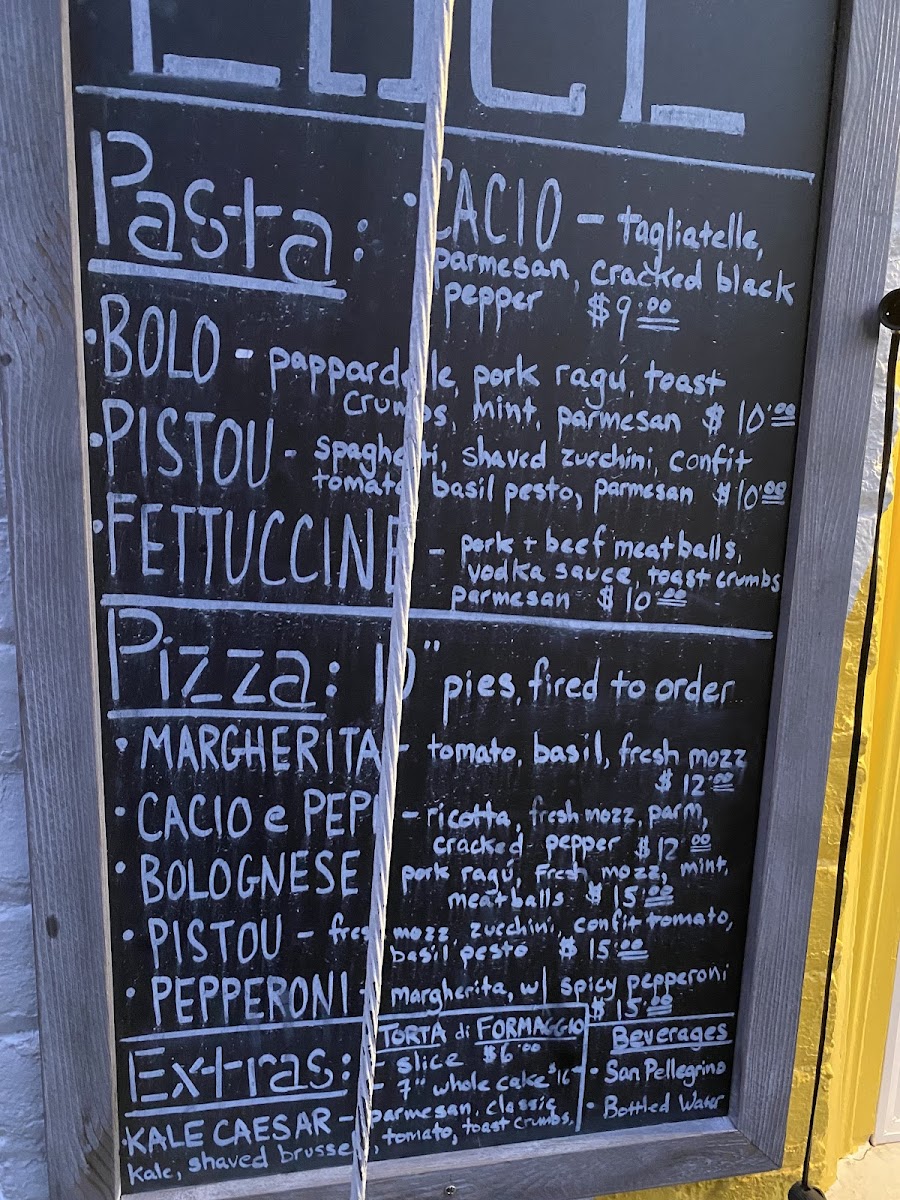 Pasta: • CACIO - tagliatelle,
parmesan, cracked black
pepper $9.00
• BOLO - pappardelle, pork ragú, toast
crumbs, mint, parmesan $10.00
• PISTOU - spaghetti, shaved zucchini, confit
tomato, basil pesto, parmesan $10.00
• FETTUCCINE - pork + beef meatballs,
vodka sauce, toast crumbs
parmesan $10.00
Pizza: 10" pies, fired to order
• MARGHERITA - tomato, basil, fresh mozz
$12.00
• CACIO e PEPE - ricotta, fresh mozz, parm,
cracked pepper $12.00
• BOLOGNESE pork ragú, fresh mozz, mint,
meatballs $15.00
• PISTOU - fresh mozz zucchini, confit tomato,
basil pesto $15.00
• PEPPERONI - margherita, w/ spicy pepperoni
$15.00
Extras:
TORTA di FORMAGGIO
- slice $6.00
- 7" whole cake $16
KALE CAESAR - parmesan, classic
kale, shaved brussel, tomato, toast crumbs,
Beverages
• San Pellegrino
• Bottled Water